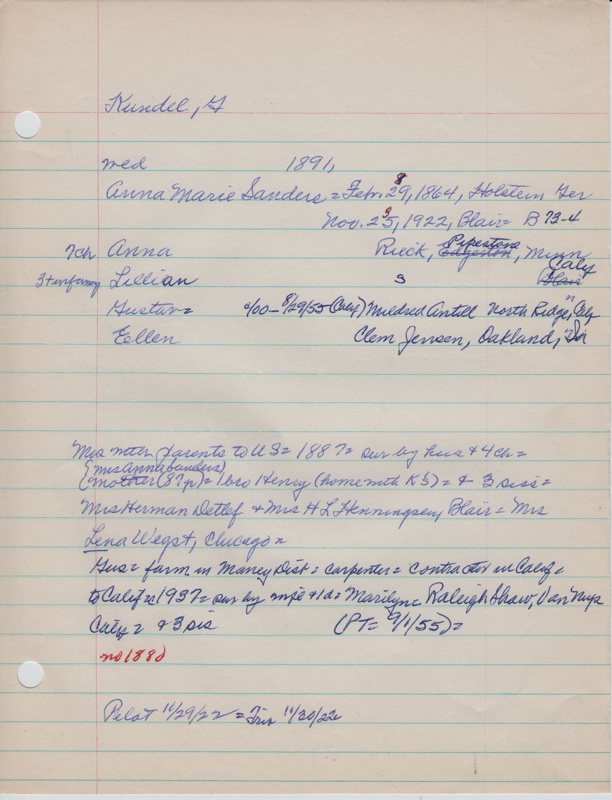 Kundel, G
med 1891,
Anna Marie Sanders = Feb. 29, 1864, Holstein Ger
8
Nov. 25, 1922, Blair = B 73-4
3
7ch Anna Rieck, Edgerton, Pipestone, Minn
3+ infancy Lillian s Blair Calif
Gustav = 4/00 - 8/29/55 Calif) Mildred Antill North Ridge, Calif
Ellen Clem Jensen, Oakland,
Mrs with parents to US = 1887 = sur by hus + 4 ch =
(Mrs Anna Sanders)
(mother (87 p) = 1 bro Henry (home with KS) = + 3 sis =
Mrs Herman Detlef + Mrs H L Henningsen, Blair = Mrs
Lena Wegst, Chicago =
Gus = farm in Maney Dist = carpenter = contractor in Calif =
to Calif 1937 = sur by wife + 1 d = Marilyn Raleigh Shaw, Van Nuys
Calif = + 3 sis (PT = 9/1/55) =
no 1880
Pilot 11/29/22 = Trib 11/30/22